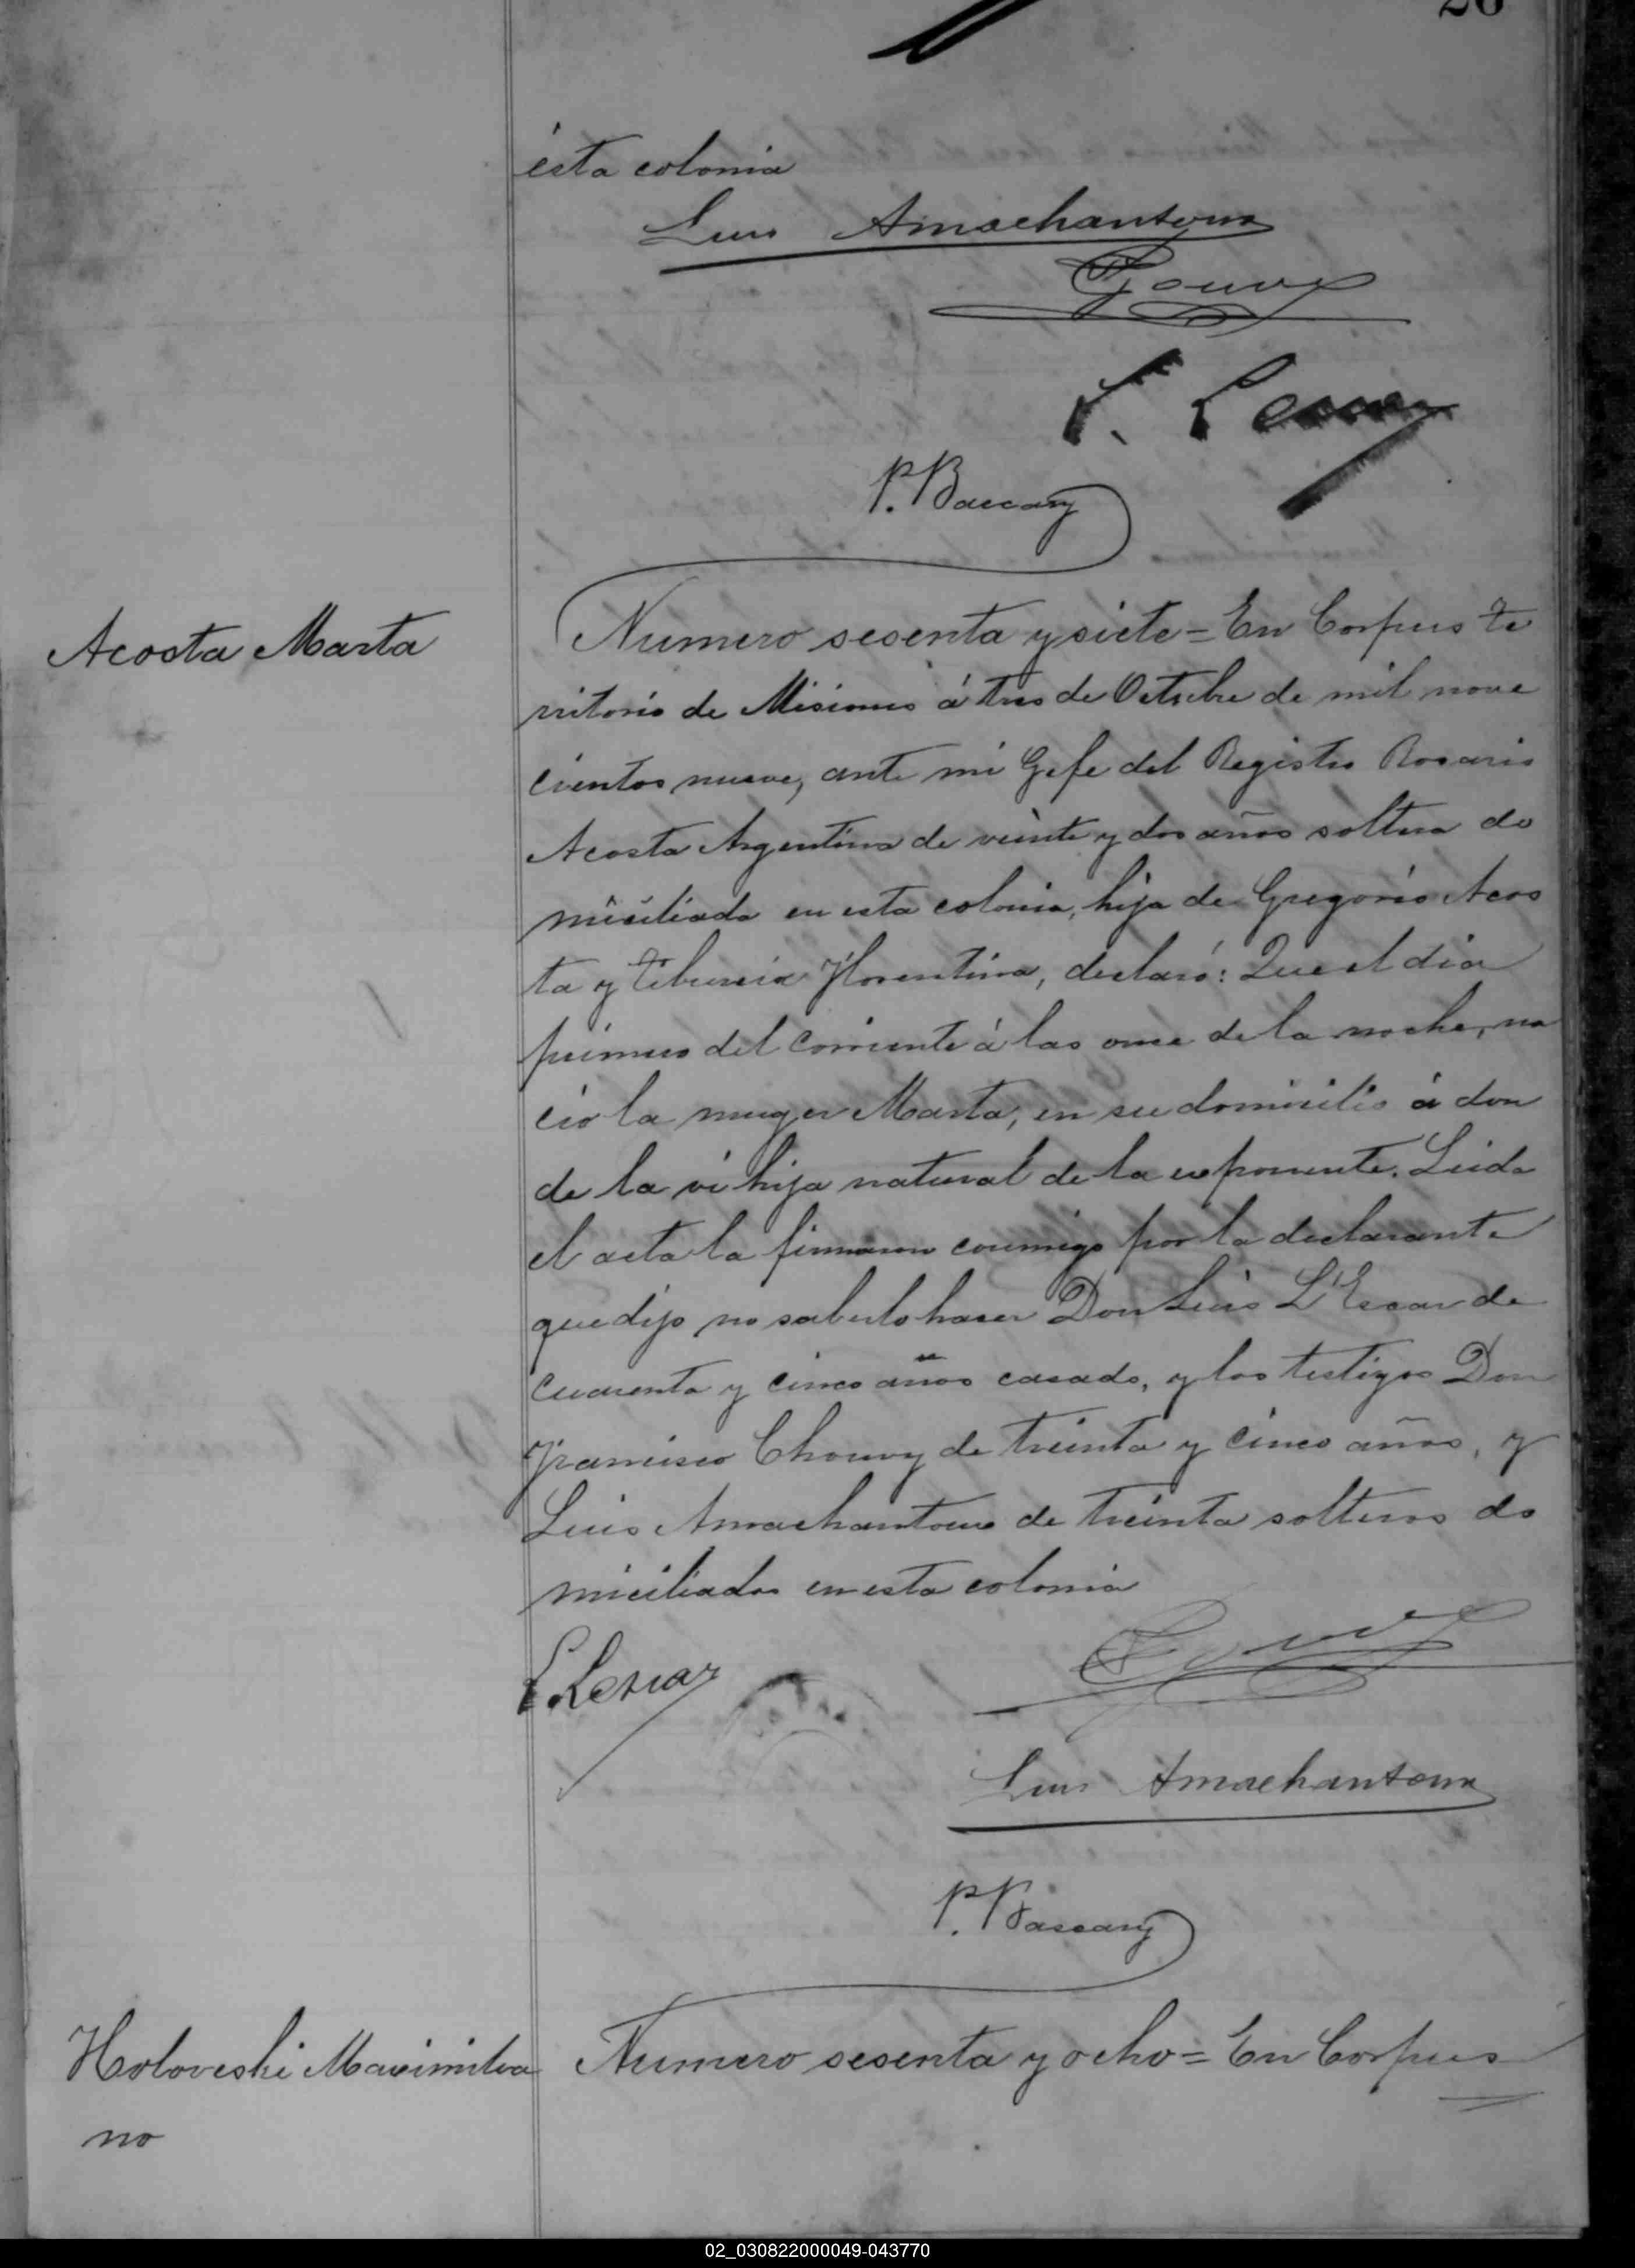 26
ésta colonia
Luis Amachantoux
P. Bascary
Acosta Marta
Numero sesenta y siete = En Corpus te
rritorio de Misiones á tres de Octubre de mil nove
cientos nueve, ante mi Gefe del Registro Rosario
Acosta Argentina de veinte y dos años soltera do
miciliada en esta colonia, hija de Gregorio Acos
ta y Tiburcia Florentina, declaró: Que el dia
primero del corriente á las once de la noche, na
cio la muger Marta, en su domicilio á don
de la ví hija natural de la exponente. Leida
el acta la firmaron conmigo por la declarante
que dijo no saberlo hacer Don Luis L'Escar de
cuarenta y cinco años casado, y los testigos Don
Francisco Chouvy de treinta y cinco años, y
Luis Amachantoux de treinta solteros do
miciliados en esta colonia
L. Lescar
Luis Amachantoux
P. Bascary
Holoveski Maximilia
no
Numero sesenta y ocho = En Corpus
02_030822000049-043770